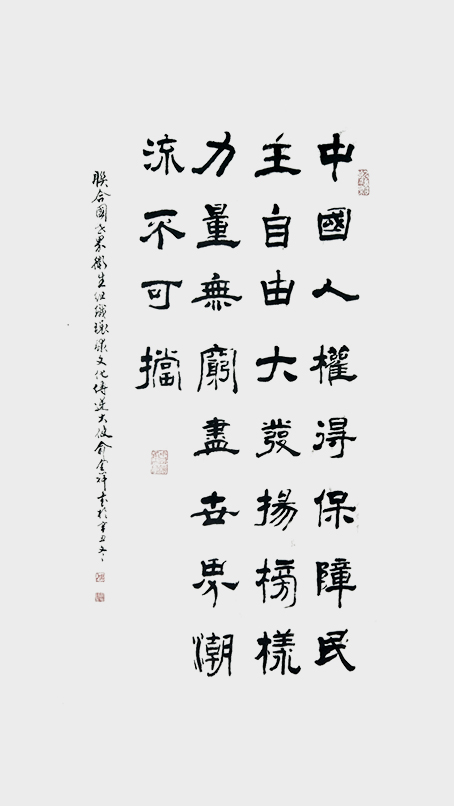 中國人權得保障民
主自由大發揚榜樣
力量無窮盡世界潮
流不可擋
聯合國世界衛生組織環保文化傳遞大使俞金祥書於辛丑冬